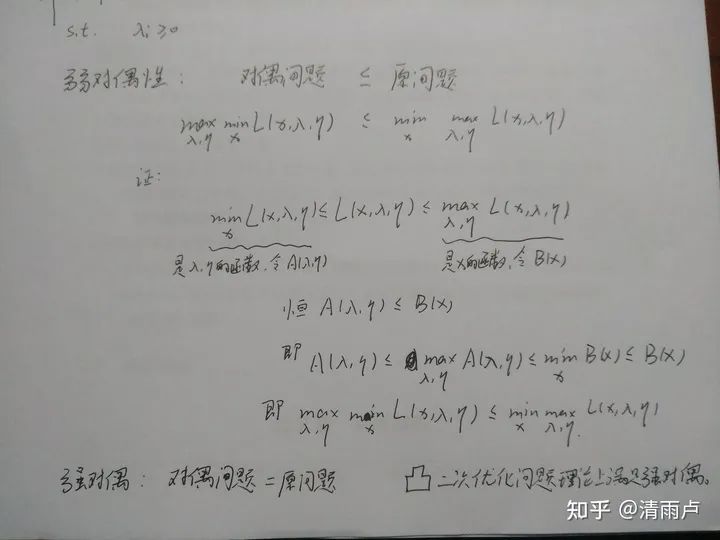 s.t. λi ≥0
弱对偶性: 对偶问题 ≤ 原问题
max min L(x,λ,η) ≤ min max L(x,λ,η)
λ,η x x λ,η
证:
min L(x,λ,η) ≤ L(x,λ,η) ≤ max L(x,λ,η)
x λ,η
是λ,η的函数,令A(λ,η) 是x的函数,令B(x)
恒 A(λ,η) ≤ B(x)
即 A(λ,η) ≤ max A(λ,η) ≤ min B(x) ≤ B(x)
λ,η x
即 max min L(x,λ,η) ≤ min max L(x,λ,η)
λ,η x x λ,η.
强对偶: 对偶问题=原问题 凸二次优化问题理论上满足强对偶。
知乎 @清雨卢